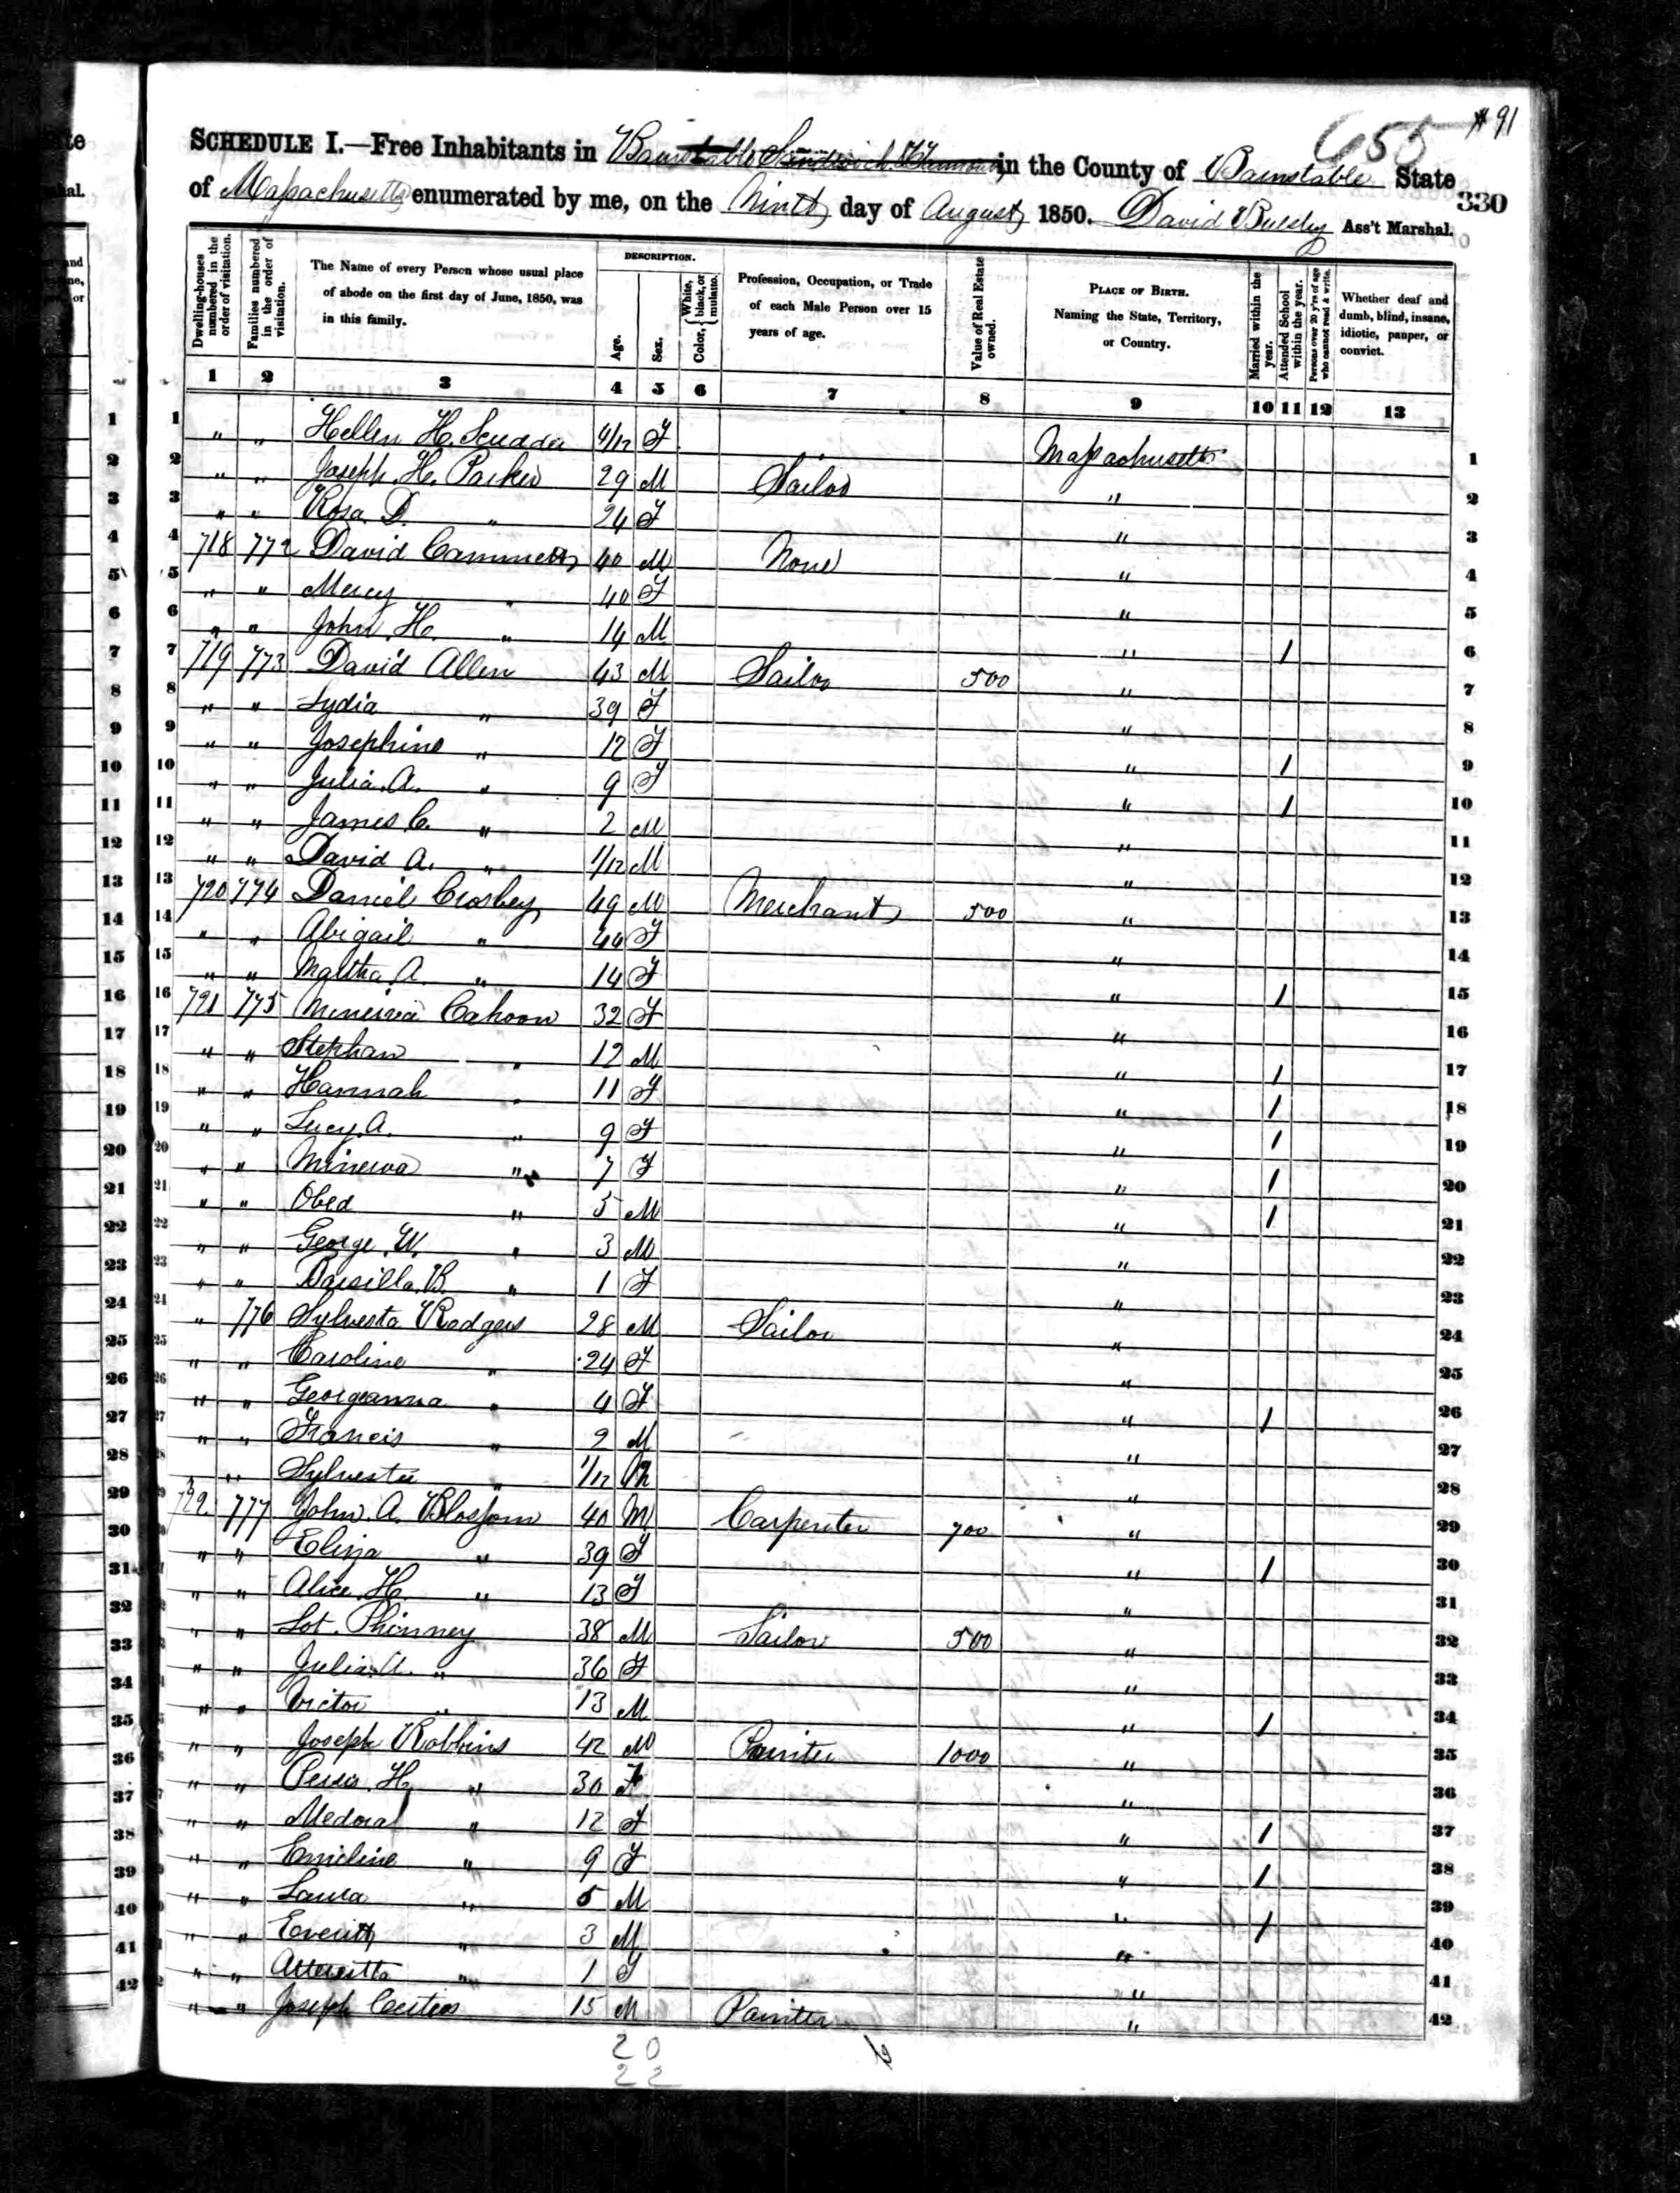 655 # 91
SCHEDULE I.—Free Inhabitants in Barnstable Sandwich & Yarmouth in the County of Barnstable State
of Massachusetts enumerated by me, on the Ninth day of August 1850. David Bursley Ass't Marshal.
330
Dwelling-houses numbered in the order of visitation.
Families numbered in the order of visitation.
The Name of every Person whose usual place of abode on the first day of June, 1850, was in this family.
DESCRIPTION.
Age.
Sex.
Color, { White, black, or mulatto.
Profession, Occupation, or Trade of each Male Person over 15 years of age.
Value of Real Estate owned.
PLACE OF BIRTH. Naming the State, Territory, or Country.
Married within the year.
Attended School within the year.
Persons over 20 y'rs of age who cannot read & write.
Whether deaf and dumb, blind, insane, idiotic, pauper, or convict.
1 2 3 4 5 6 7 8 9 10 11 12 13
1 " " Hellen H. Scudder F Massachusetts 1
2 " " Joseph H. Parker 29 M Sailor " 2
3 " " Rosa D. " 24 F " 3
4 718 772 David Cammett 40 M None " 4
5 " " Mercy " 40 F " 5
6 " " John H. " 14 M " 1 6
7 719 773 David Allen 43 M Sailor 500 " 7
8 " " Lydia " 39 F " 8
9 " " Josephine " 12 F " 1 9
10 " " Julia A. " 9 F " 1 10
11 " " James C. " 2 M " 11
12 " " David A. " 1/12 M " 12
13 720 774 Daniel Crosby 49 M Merchant 500 " 13
14 " " Abigail " 44 F " 14
15 " " Martha A. " 14 F " 1 15
16 721 775 Minerva Cahoon 32 F " 16
17 " " Stephan " 12 M " 1 17
18 " " Hannah " 11 F " 1 18
19 " " Lucy A. " 9 F " 1 19
20 " " Minerva " 7 F " 1 20
21 " " Obed " 5 M " 1 21
22 " " George W. " 3 M " 22
23 " " Darsilla B. " 1 F " 23
24 " 776 Sylvester Rodgers 28 M Sailor " 24
25 " " Caroline " 24 F " 25
26 " " Georgeanna " 4 F " 1 26
27 " " Francis " 2 M " 27
28 " " Sylvester " 1/12 M " 28
29 722 777 John A. Blossom 40 M Carpenter 700 " 29
30 " " Eliza " 39 F " 1 30
31 " " Alice H. " 13 F " 31
32 " " Lot Phinney 38 M Sailor 500 " 32
33 " " Julia A. " 36 F " 33
34 " " Victor " 13 M " 1 34
35 " " Joseph Robbins 42 M Painter 1000 " 35
36 " " Persis H. " 30 F " 36
37 " " Medora " 12 F " 1 37
38 " " Emeline " 9 F " 1 38
39 " " Laura " 5 M " 1 39
40 " " Everett " 3 M " 40
41 " " " 1 F " 41
42 " " Joseph 15 M Painter " 42
20
22